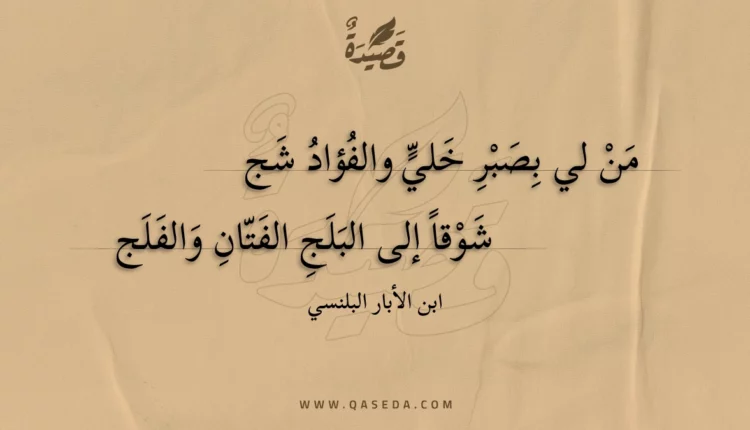 قَصِيدَةٌ
مَنْ لي بِصَبْرِ خَليٍّ والفُؤادُ شَج
شَوْقاً إلى البَلَجِ الفَتّانِ وَالفَلَج
ابن الأبار البلنسي
WWW.QASEDA.COM